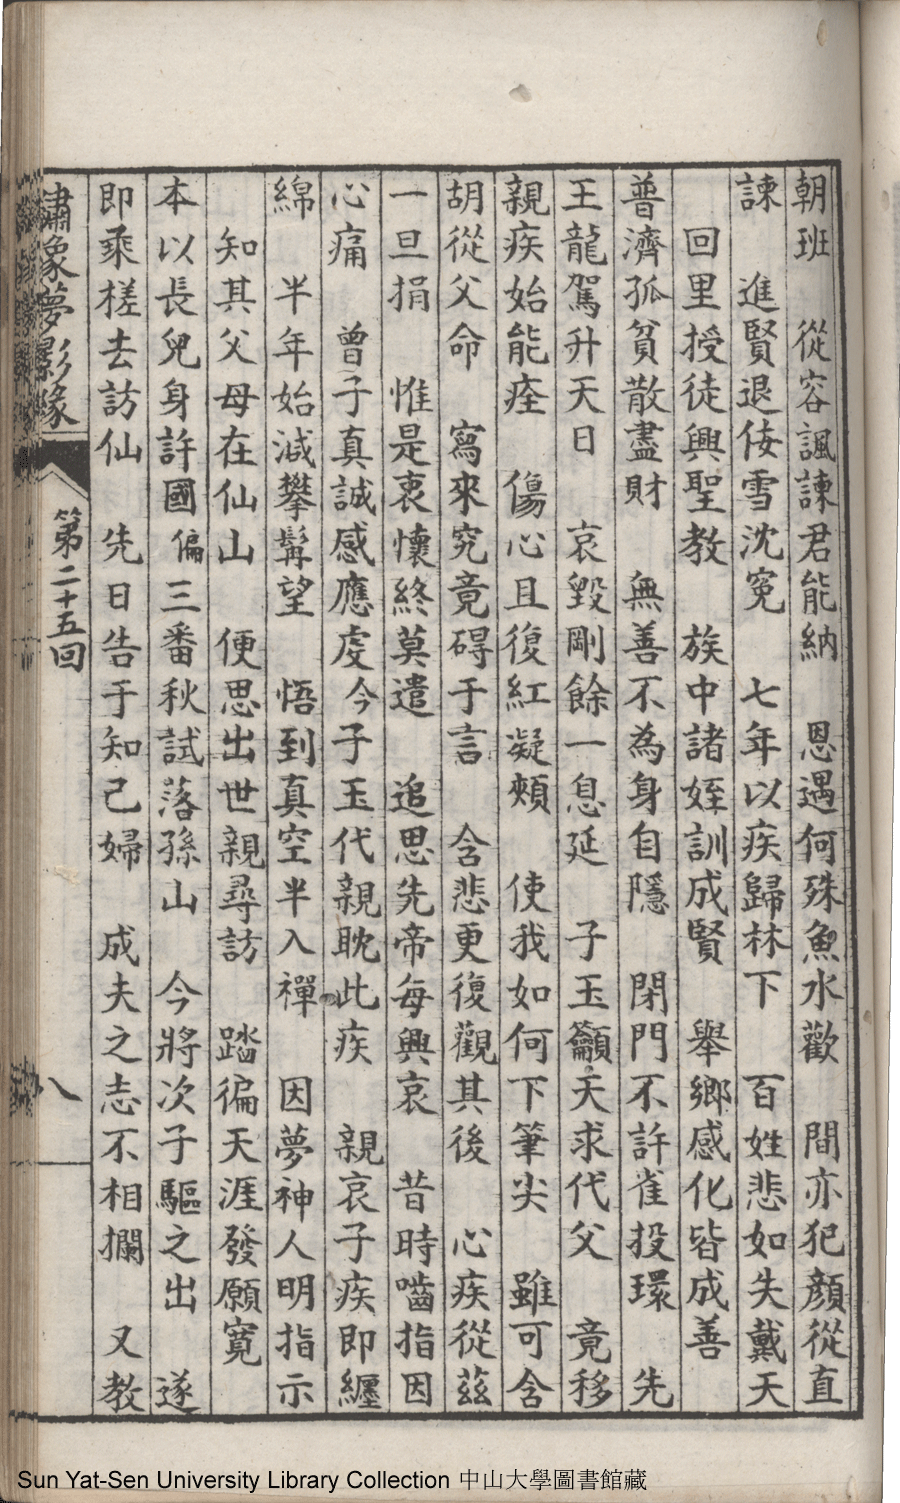 朝班　從容諷諫君能納　恩遇何殊魚水歡　間亦犯顏從直
諫　進賢退佞雪沈冤　七年以疾歸林下　百姓悲如失戴天
回里授徒興聖教　族中諸姪訓成賢　舉鄉感化皆成善
普濟孤貧散盡財　無善不為身自隱　閉門不許雀投環　先
王龍駕升天日　哀毀剛餘一息延　子玉籲天求代父　竟移
親疾始能痊　傷心且復紅凝頰　使我如何下筆尖　雖可含
胡從父命　寫來究竟碍于言　含悲更復觀其後　心疾從茲
一旦捐　惟是衷懷終莫遣　追思先帝每興哀　昔時嚙指因
心痛　曾子真誠感應虔今子玉代親耽此疾　親哀子疾即纏
綿　半年始減攀髯望　悟到真空半入禪　因夢神人明指示
知其父母在仙山　便思出世親尋訪　踏徧天涯發願寬
本以長兒身許國偏三番秋試落孫山　今將次子驅之出　遂
即乘槎去訪仙　先日告于知己婦　成夫之志不相攔　又教
瀟象夢影緣　第二十五回　八
Sun Yat-Sen University Library Collection 中山大學圖書館藏